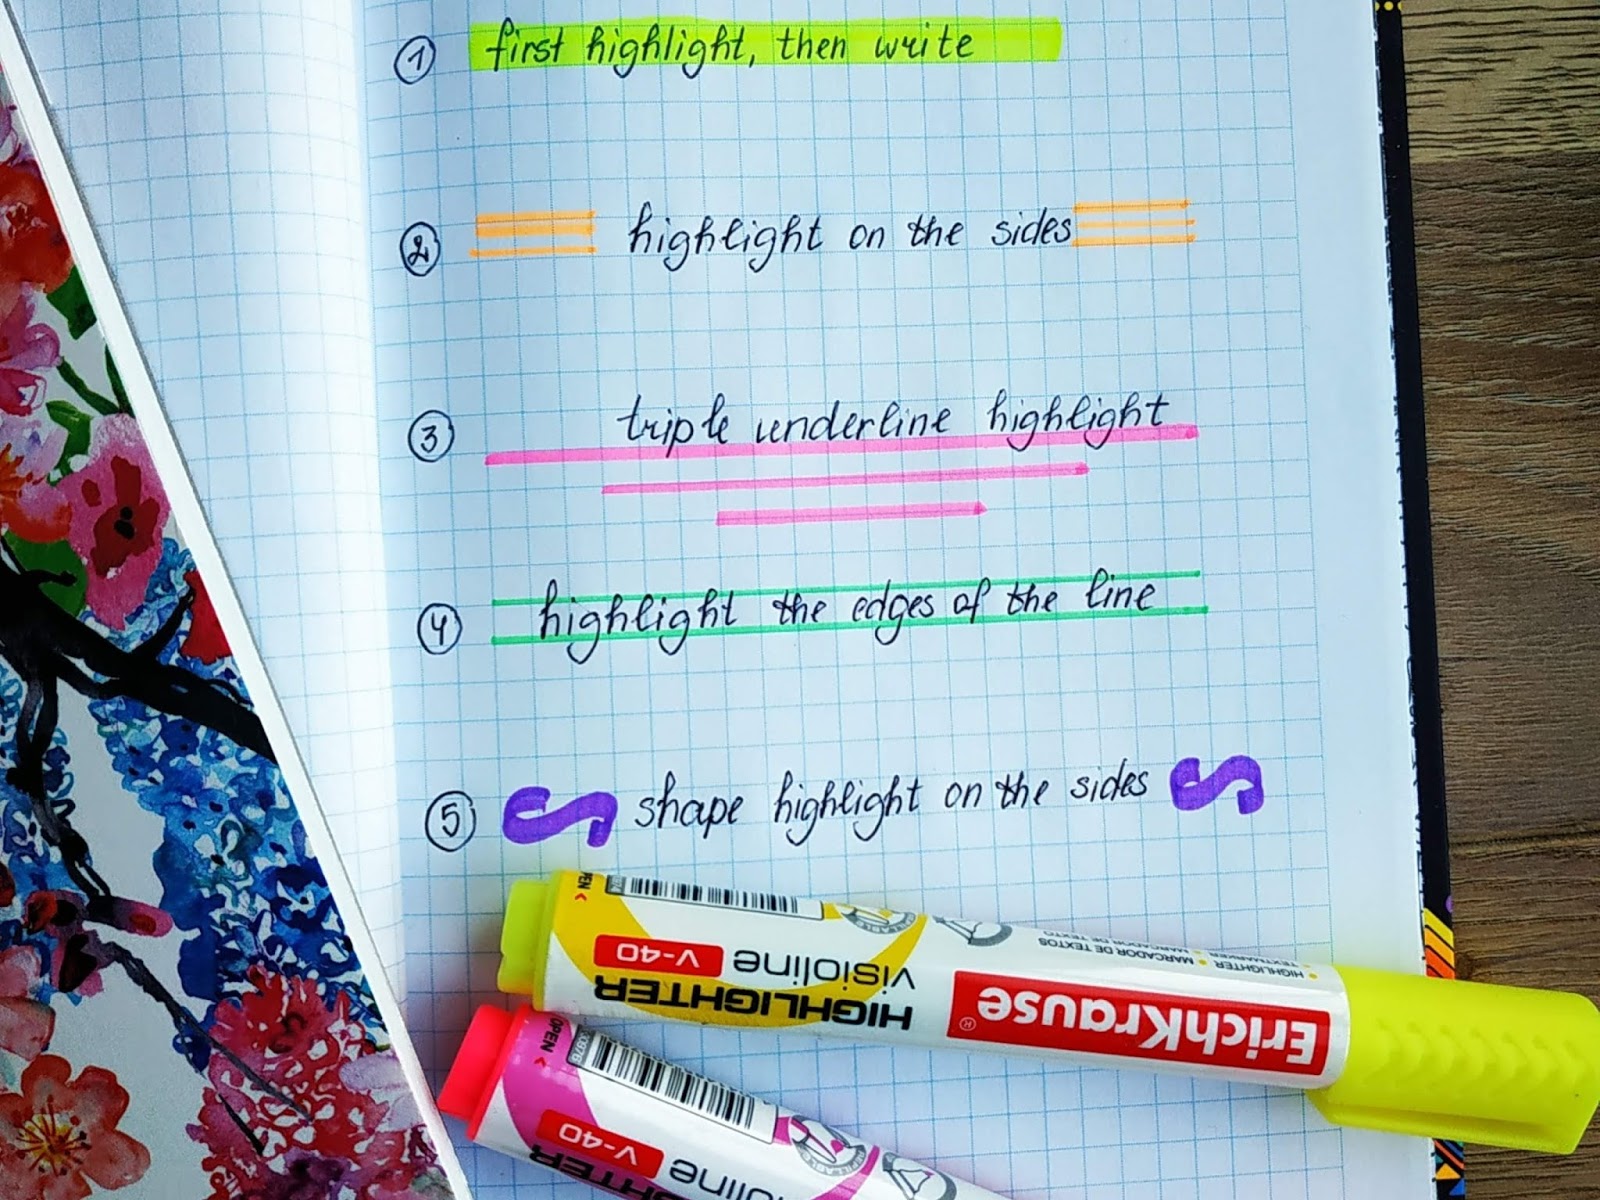 1 first highlight, then write
2 highlight on the sides
3 triple underline highlight
4 highlight the edges of the line
5 shape highlight on the sides
OPEN
ErichKrause®
HIGHLIGHTER
visioline
V-40
• HIGHLIGHTER • MARCADOR DE TEXTOS
• TEXTMARKER • MARCADOR DE TEXTO
OPEN
V-40